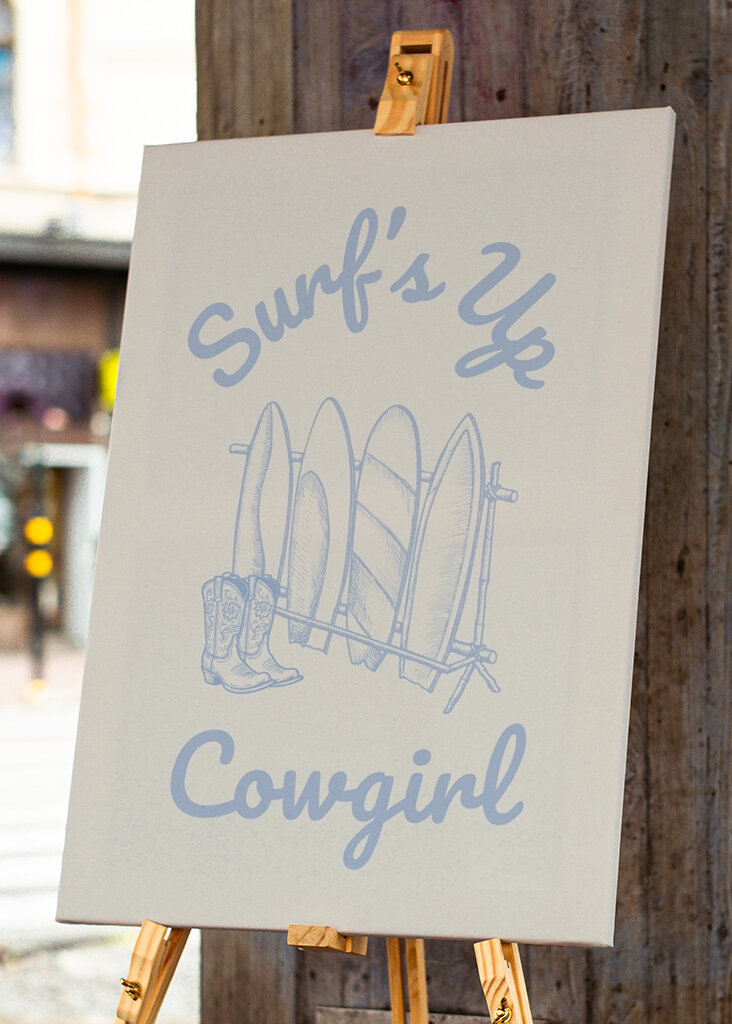 Surf's Up
Cowgirl